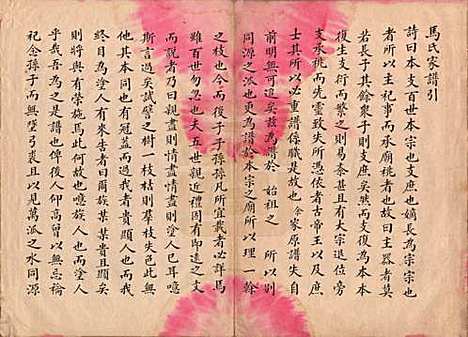 馬氏家譜引
詩曰本支百世本宗也支庶也嫡長為宗宗也
者所以主祀事而承廟祧者也故曰主器者莫
若長子其餘衆子則支庶矣然而支復為本本
復生支衍而繁之則易紊甚且有大宗退位旁
支承祧而先靈致失所憑依者古帝王以及庶
士其所以必重譜係職是故也余家原譜失自
前明無可追矣故為譜於始祖之所以別
同源之派也更為譜於本宗之廟所以理一幹
之枝也今而後子子孫孫凡所宜載者必詳焉
雖百世勿忽也夫五世親近禮固有即遠之文
而說者乃曰親盡則情盡情盡則塗人已耳噫
斯言過矣試譬之樹一枝枯則羣枝失色此無
他其本同也有冠蓋而過我者貴顯人也而我
終目為塗人有來告者曰爾族某某貴且顯人也
則將與有榮施焉此何以故噫族人也而塗人
乎哉吾為之是譜也俾後人仰高曾以無忘禴
祀念孫子而無墮弓裘且以見萬派之水同源